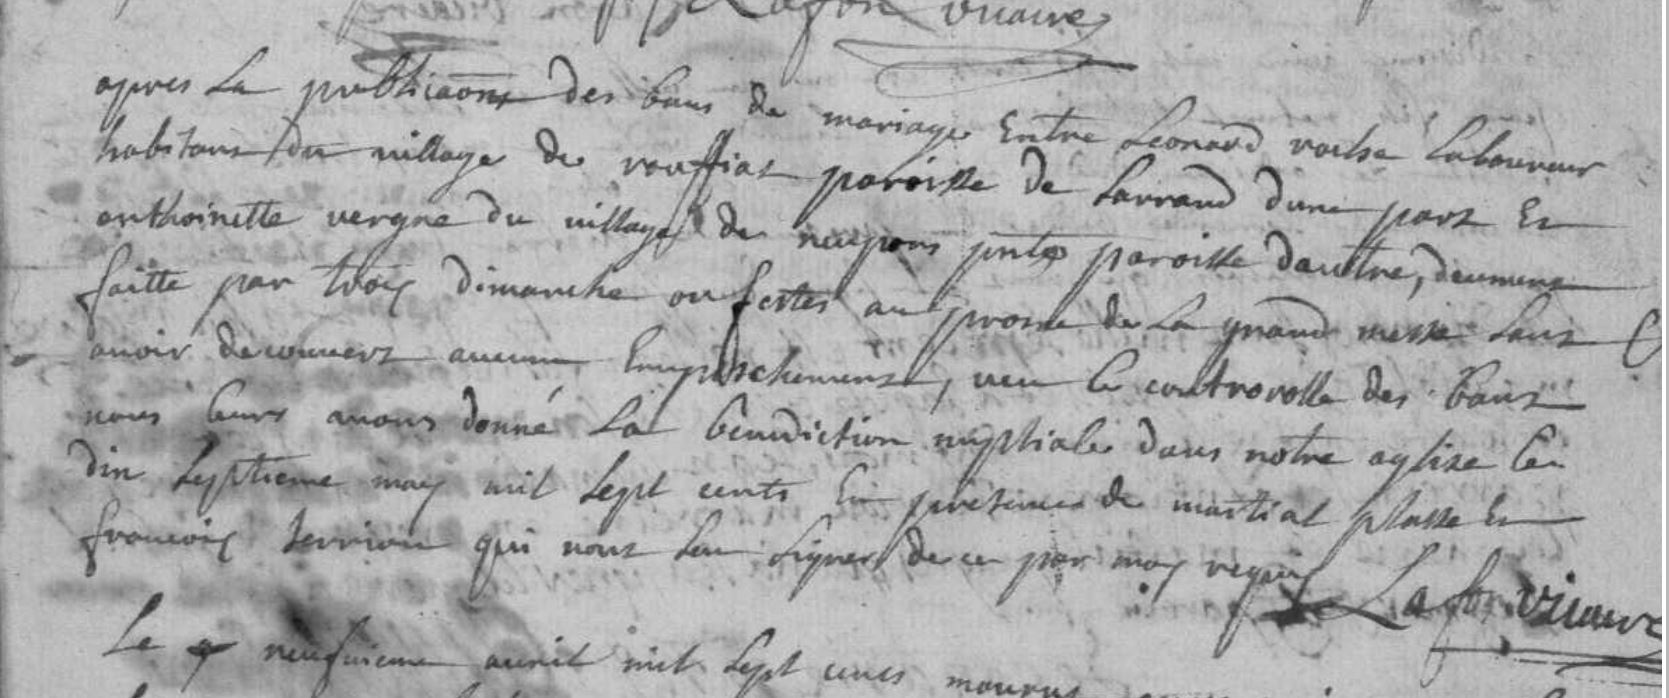 Lafon vicaire
apres La publicaons des bans de mariage Entre Leonard roche Laboureur
habitans du village de rouffiat paroisse de Larrand dune part Et
anthoinette vergne du village de neupons pnte paroisse dautre, deument
faitte par trois dimanche ou festes au prosne de La grand messe sans
avoir decouvert aucun Empeschement, veu le controrolle des bans
nous leurs avons donné La benediction nuptiale dans notre eglize le
dix septieme may mil sept cents En presence de martial plasse Et
francois terriou qui nont sceu signer de ce par moy requis Lafon vicaire
Le neufvieme avril mil sept cens mourut